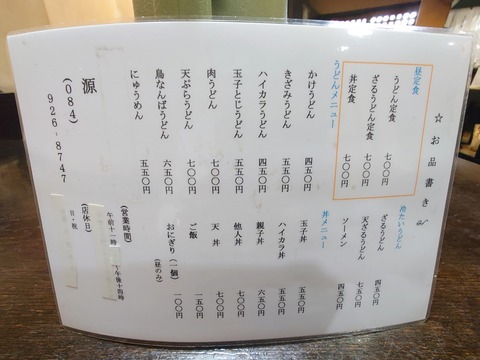 ☆ お 品 書 き
昼定食
うどん定食 七〇〇円
ざるうどん定食 七〇〇円
丼定食 七〇〇円
冷たいうどん
ざるうどん 四五〇円
天ざるうどん 七五〇円
ソーメン 四五〇円
うどんメニュー
かけうどん 四五〇円
きざみうどん 五五〇円
ハイカラうどん 四五〇円
玉子とじうどん 五五〇円
肉うどん 七〇〇円
天ぷらうどん 七〇〇円
鳥なんばうどん 六五〇円
にゅうめん 五五〇円
丼メニュー
玉子丼 五五〇円
ハイカラ丼 四五〇円
親子丼 六五〇円
他人丼 七〇〇円
天 丼 七〇〇円
ご飯 一五〇円
おにぎり(一個) 一〇〇円
(昼のみ)
(営業時間)
午前十一時 午後十四時
(店休日)
日・祝
源
(084)
926-8747